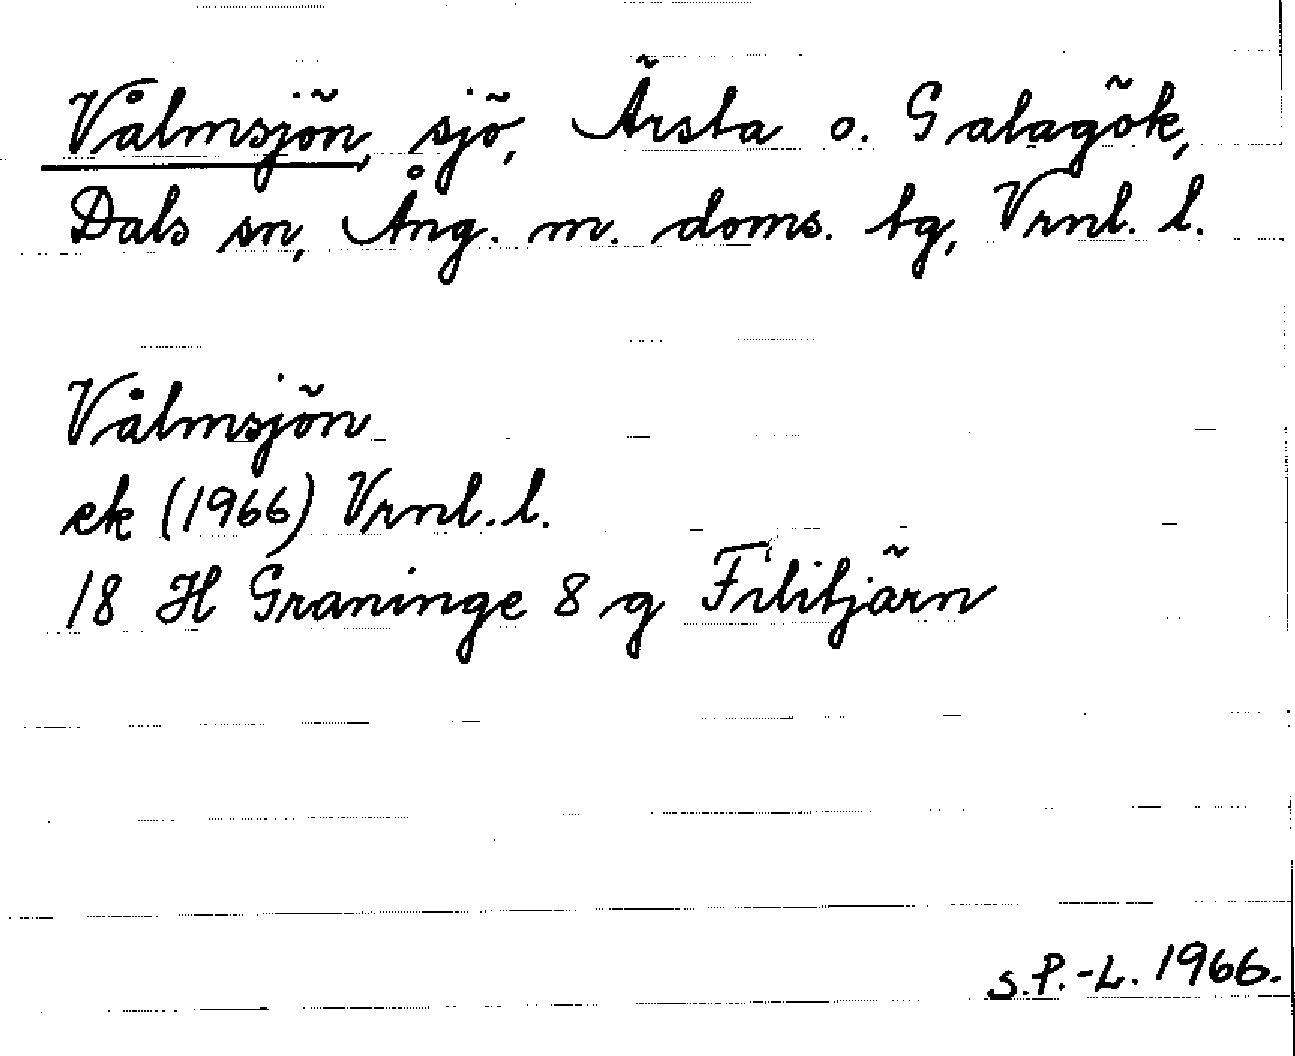 Vålmsjön, sjö, Ärsta o. Galagök,
Dals sn, Ång. m. doms. tg, Vrnl. l.
Vålmsjön
ek (1966) Vrnl. l.
18 H Graninge 8 g Filitjärn
S.P.-L. 1966.